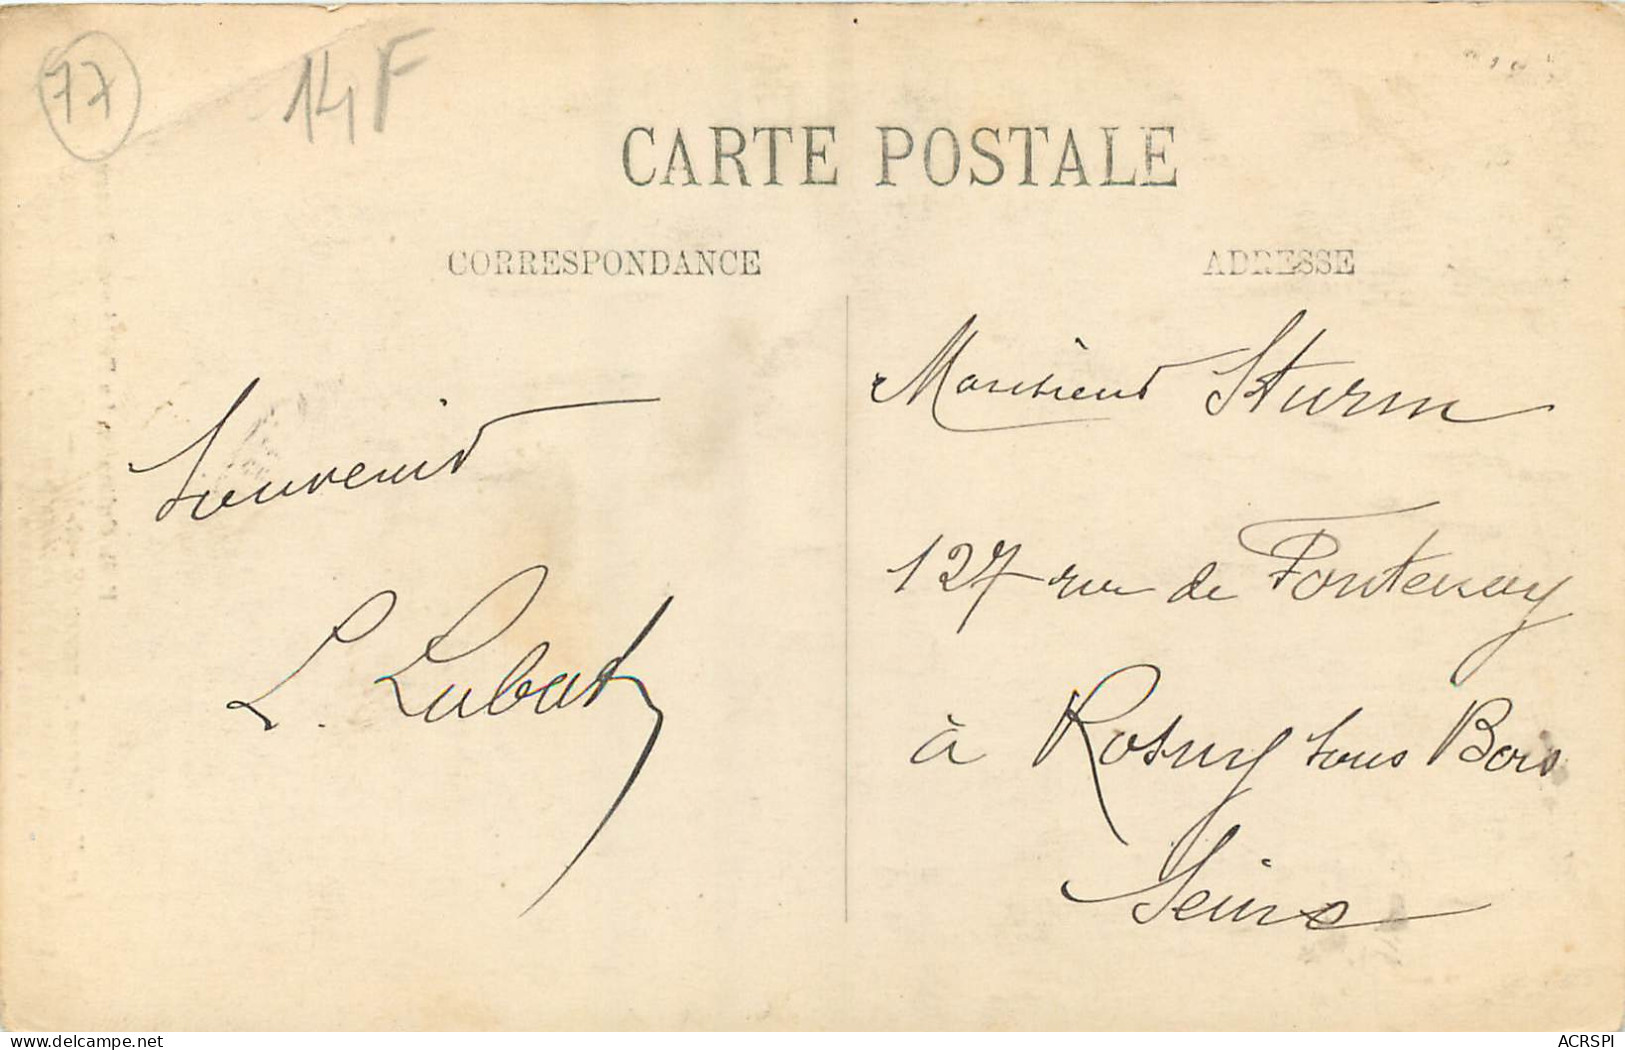 77
14F
CARTE POSTALE
CORRESPONDANCE
ADRESSE
Souvenir
L. Labat
Monsieur Sturm
127 rue de Fontenay
à Rosny sous Bois
Seine
delcampe.net
ACRSPI